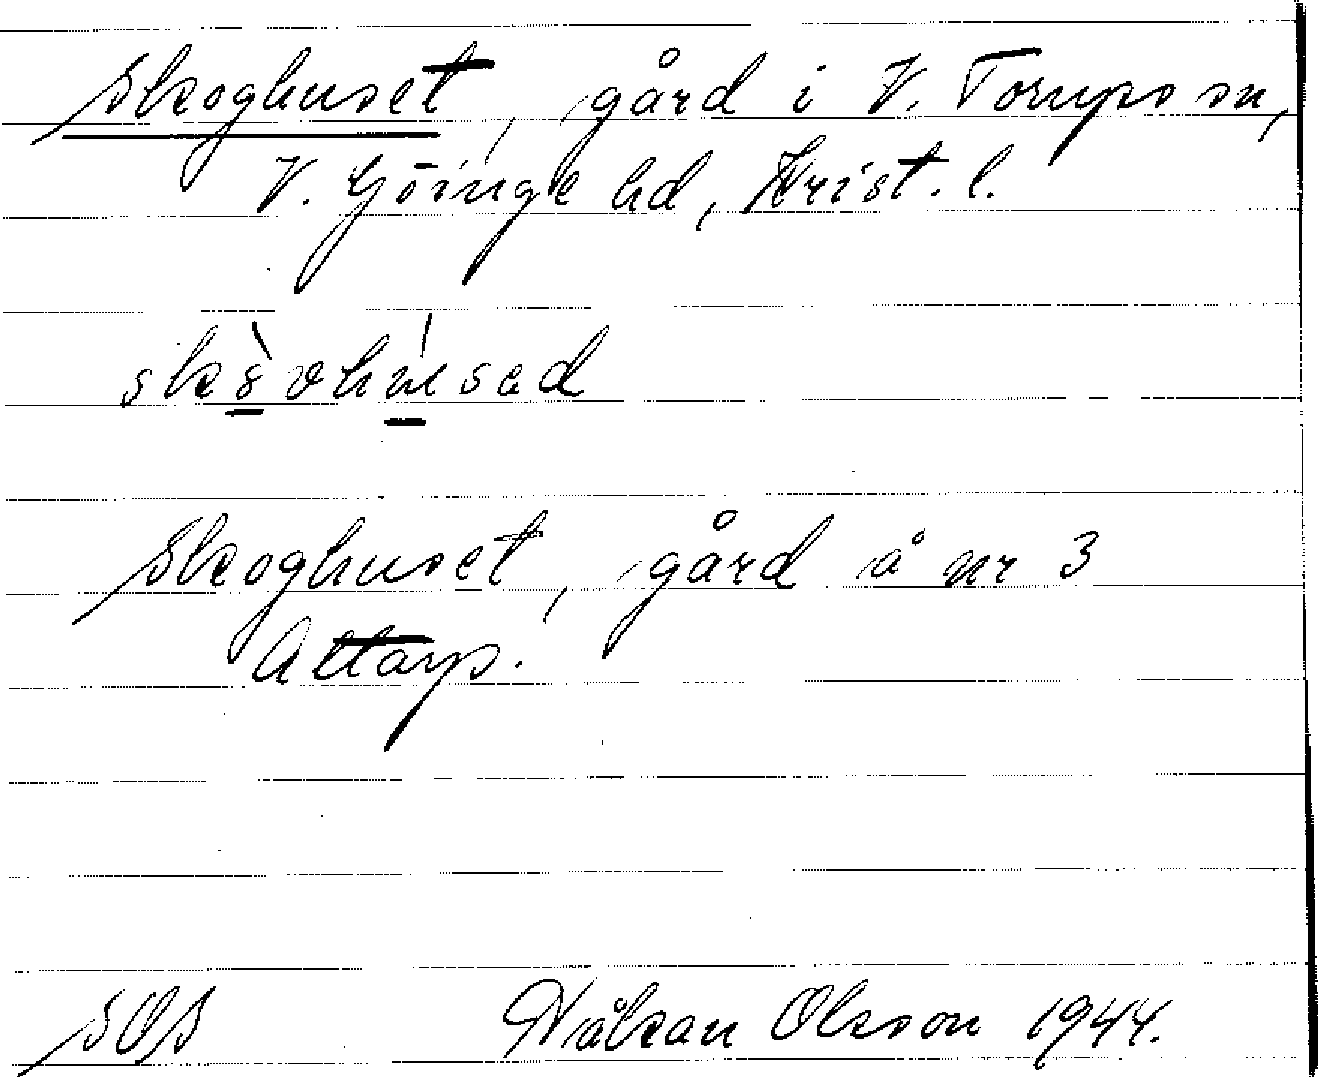 Skoghuset, gård i V. Torups sn,
V. Göinge hd, Krist. l.
Skoghuset, gård å nr 3
Attarp.
SOS Håkan Olsson 1944.